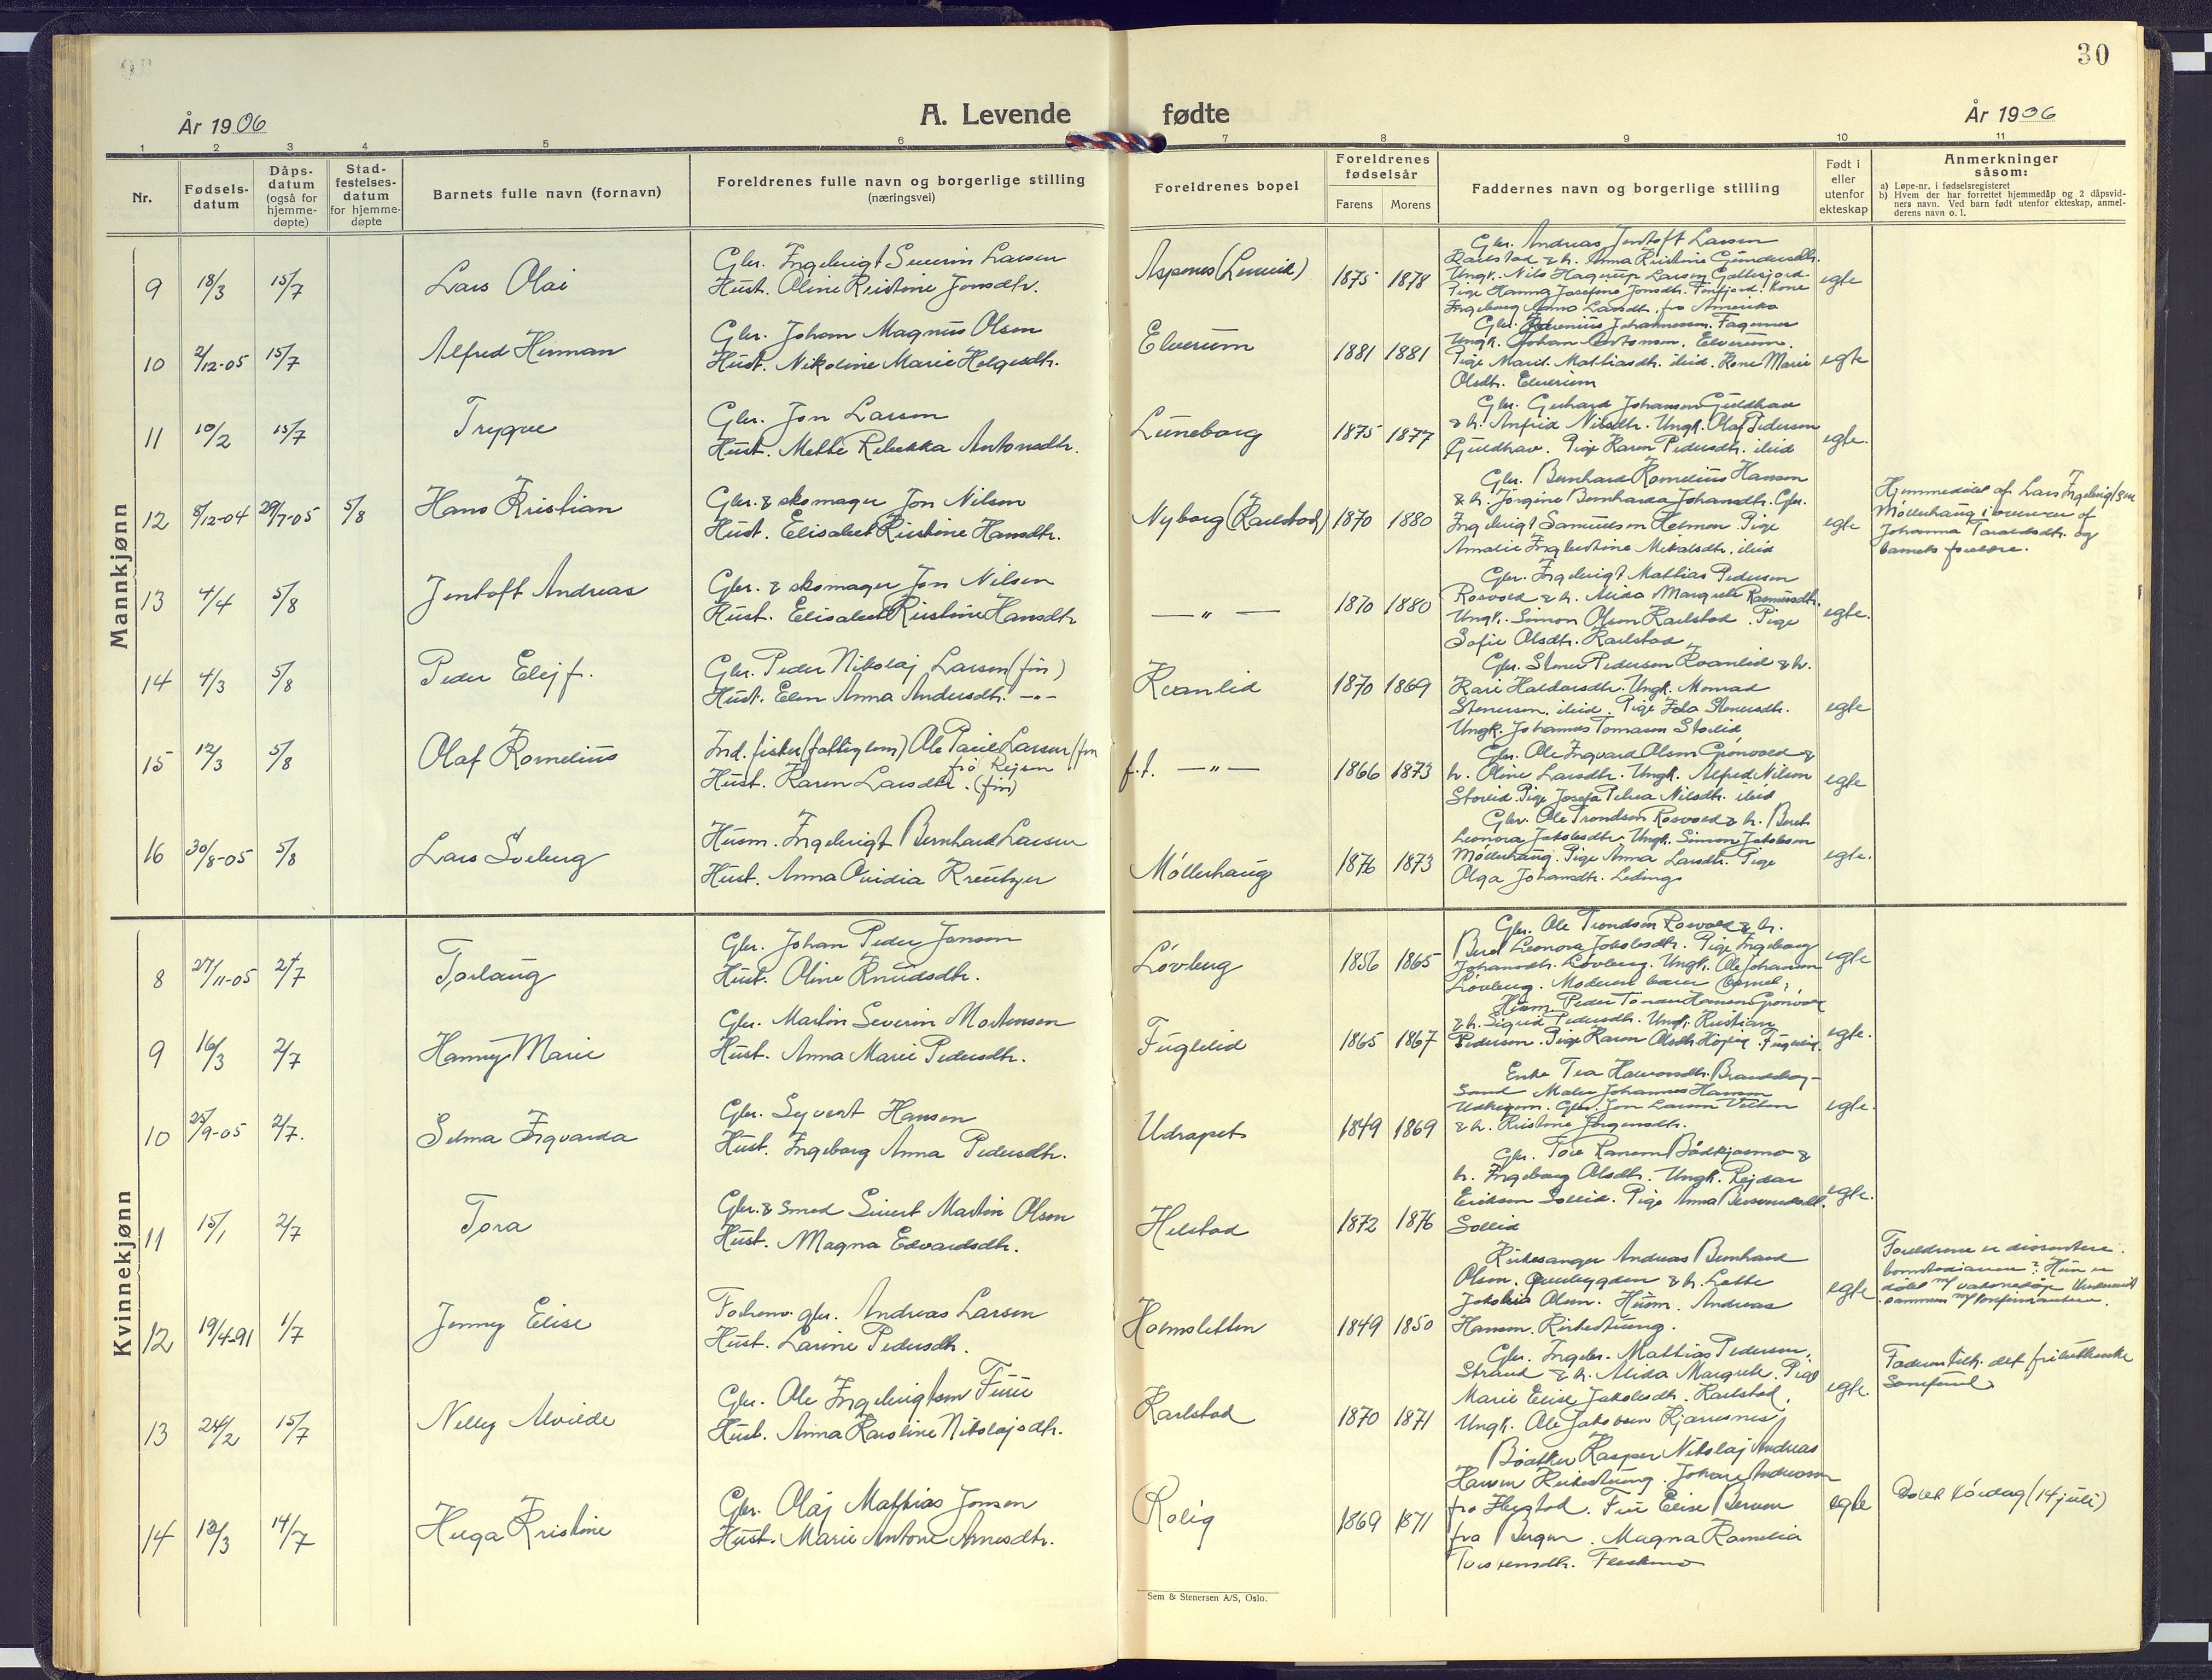 30
År 1906
A. Levende fødte
År 1906
1 2 3 4 5 6 7 8 9 10 11
Nr.
Fødsels-
datum
Dåps-
datum
(også for
hjemme-
døpte)
Stad-
festelses-
datum
for hjemme-
døpte
Barnets fulle navn (fornavn)
Foreldrenes fulle navn og borgerlige stilling
(næringsvei)
Foreldrenes bopel
Foreldrenes
fødselsår
Farens Morens
Faddernes navn og borgerlige stilling
Født i
eller
utenfor
ekteskap
Anmerkninger
såsom:
a) Løpe-nr. i fødselsregisteret
b) Hvem der har forrettet hjemmedåp og 2 dåpsvid-
ners navn. Ved barn født utenfor ekteskap, anmel-
derens navn o. l.
Mannkjønn
9 18/3 15/7 Lars Olai
Gbr. Ingebrigt Severin Larsen
Hust. Oline Kristine Jonsdtr.
1875 1878
Gbr. Andreas Jentoft Larsen
Karlstad & h. Anna Kristine Gundersdtr.
Ungk. Nils Hagerup Larsen
Pige Hanna Josefine Jonsdtr. Finfjord. Kone
Ingeborg Anna Larsdtr. fra Amerika
egte
10 2/12-05 15/7 Alfred Herman
Gbr. Johan Magnus Olsen
Hust. Nikoline Marie Helgesdtr.
Elverum
1881 1881
Gbr. Johannessen. Fagernes
Ungk. Johan Antonsen, Elverum.
Pige Marit Mathiasdtr. ibid. Kone Marie
Olsdtr. Elverum
egte
11 10/2 15/7 Trygve
Gbr. Jon Larsen
Hust. Mette Rebekka Antonsdtr.
Luneborg
1875 1877
Gbr. Gerhard Johansen Guldhav
& h. Anfrid Nilsdtr. Ungk. Olaf Pedersen
Guldhav. Pige Karen Pedersdtr. ibid
egte.
12 8/12-04 29/7-05 5/8 Hans Kristian
Gbr. & skomager Jon Nilsen
Hust. Elisabet Kristine Hansdtr.
Nyborg (Karlstad)
1870 1880
Gbr. Bernhard Kornelius Hansen
& h. Jørgine Bernharda Johansdtr. Gbr.
Ingebrigt Samuelsen Helmon. Pige
Amalie Ingbertine Mikalsdtr. ibid
egte
Hjemmedøbt af Lars Ingebrigtsen
Møllerhaug i overvær af
Johanna Taraldsdtr. og
barnets forældre.
13 4/4 5/8 Jentoft Andreas
Gbr. & skomager Jon Nilsen
Hust. Elisabet Kristine Hansdtr
— " —
1870 1880
Gbr. Ingebrigt Mathias Pedersen
Rosvold & h. Alida Margrete Rasmusdtr.
Ungk. Simon Olsen Karlstad. Pige
Sofie Olsdtr. Karlstad
egte.
14 4/3 5/8 Peder Elejf.
Gbr. Peder Nikolaj Larsen (fin)
Hust. Elen Anna Andersdtr. —"—
Kvanlid
1870 1869
Gbr. Stener Pedersen Kvanlid & h.
Kari Haldorsdtr. Ungk. Monrad
Stenersen, ibid. Pige Ida Stenersdtr.
Ungk. Johannes Tomasen Storlid
egte
15 12/3 5/8 Olaf Kornelius
Ind. fisker (fattiglem) Ole Paul Larsen (fin
fra Rejsen
Hust. Karen Larsdtr. (fin)
f.t. — " —
1866 1873
Gbr. Ole Ingvard Olsen Grønvold &
h. Oline Larsdtr. Ungk. Alfred Nilsen
Storlid. Pige Josefa Petrea Nilsdtr. ibid
egte
16 30/8-05 5/8 Lars Solberg
Husm. Ingebrigt Bernhard Larsen
Hust. Anna Ovidia Kreutzer
Møllerhaug
1876 1873
Gbr. Ole Trondsen Rosvold & h. Beret
Leonora Jakobsdtr. Ungk. Simon Jakobsen
Møllerhaug. Pige Anna Larsdtr. Pige
Olga Johansdtr. Ledings
egte.
Kvinnekjønn
8 27/11-05 2/7 Torlaug
Gbr. Johan Peder Jonsen
Hust. Oline Knudsdtr.
Løvberg
1856 1865
Gbr. Ole Trondsen Rosvold & h.
Beret Leonora Jakobsdtr. Pige Ingeborg
Johansdtr. Løvberg. Ungk. Ole Johansen
Løvberg. Moderen barn
egte
9 16/3 2/7 Hanny Marie
Gbr. Martin Severin Mortensen
Hust. Anna Marie Pedersdtr.
Fuglelid
1865 1867
Husm. Peder Tønder Hansen Grønvold
& h. Sigrid Pedersdtr. Ungk. Kristian
Pedersen. Pige Karen Olsdtr
egte.
10 25/9-05 2/7. Selma Ingvarda
Gbr. Syvert Hansen
Hust. Ingeborg Anna Pedersdtr.
Udrapet
1849 1869
Enke Tea Halvorsdtr.
Maler Johannes Hansen
Gbr. Jon Larsen
& h. Kristine Jørgensdtr.
egte.
11 15/1 2/7 Tora
Gbr. & smed Sivert Martin Olsen
Hust. Magna Edvardsdtr.
Helstad
1872 1876
Gbr. Tore Hansen &
h. Ingeborg Olsdtr. Ungk. Rejdar
Eriksen Sollid. Pige Anna
Sollid
egte.
12 19/4-91 1/7 Jenny Elise
gbr. Andreas Larsen
Hust. Larine Pedersdtr.
Holmsletten
1849 1850
Kirkesanger Andreas Bernhard
Olsen. Øverbygden & h. Lotte
Jakobia Olsen. Husm. Andreas
Hansen. Kirkestuung.
egte
Forældrene er dissentere.
Hun er
døbt m/ voksnedåp. Undervist
sammen m/ konfirmantene.
13 24/2 15/7 Nelly Alvilde
Gbr. Ole Ingebrigtsen Furu
Hust. Anna Karoline Nikolajsdtr.
Karlstad
1870 1871
Gbr. Ingebr. Mathias Pedersen,
Strand & h. Alida Margrete. Pige
Marie Elise Jakobsdtr. Karlstad.
Ungk. Ole Jakobsen Kjærresnes
egte.
Faderen tilh. det frilutherske
Samfund.
14 12/3 14/7 Helga Kristine
Gbr. Olaj Mathias Jonsen
Hust. Marie Antone Arnesdtr.
Rolig
1869 1871
Kasper Nikolaj Andreas
Hansen Kirkestuung. Johan Andreasen
fra Hegstad. Fru Elise
fra Bergen. Magna Kornelia
Torstensdtr. Fleskmo
egte
Døbt Lørdag (14 juli)
Sem & Stenersen A/S, Oslo.